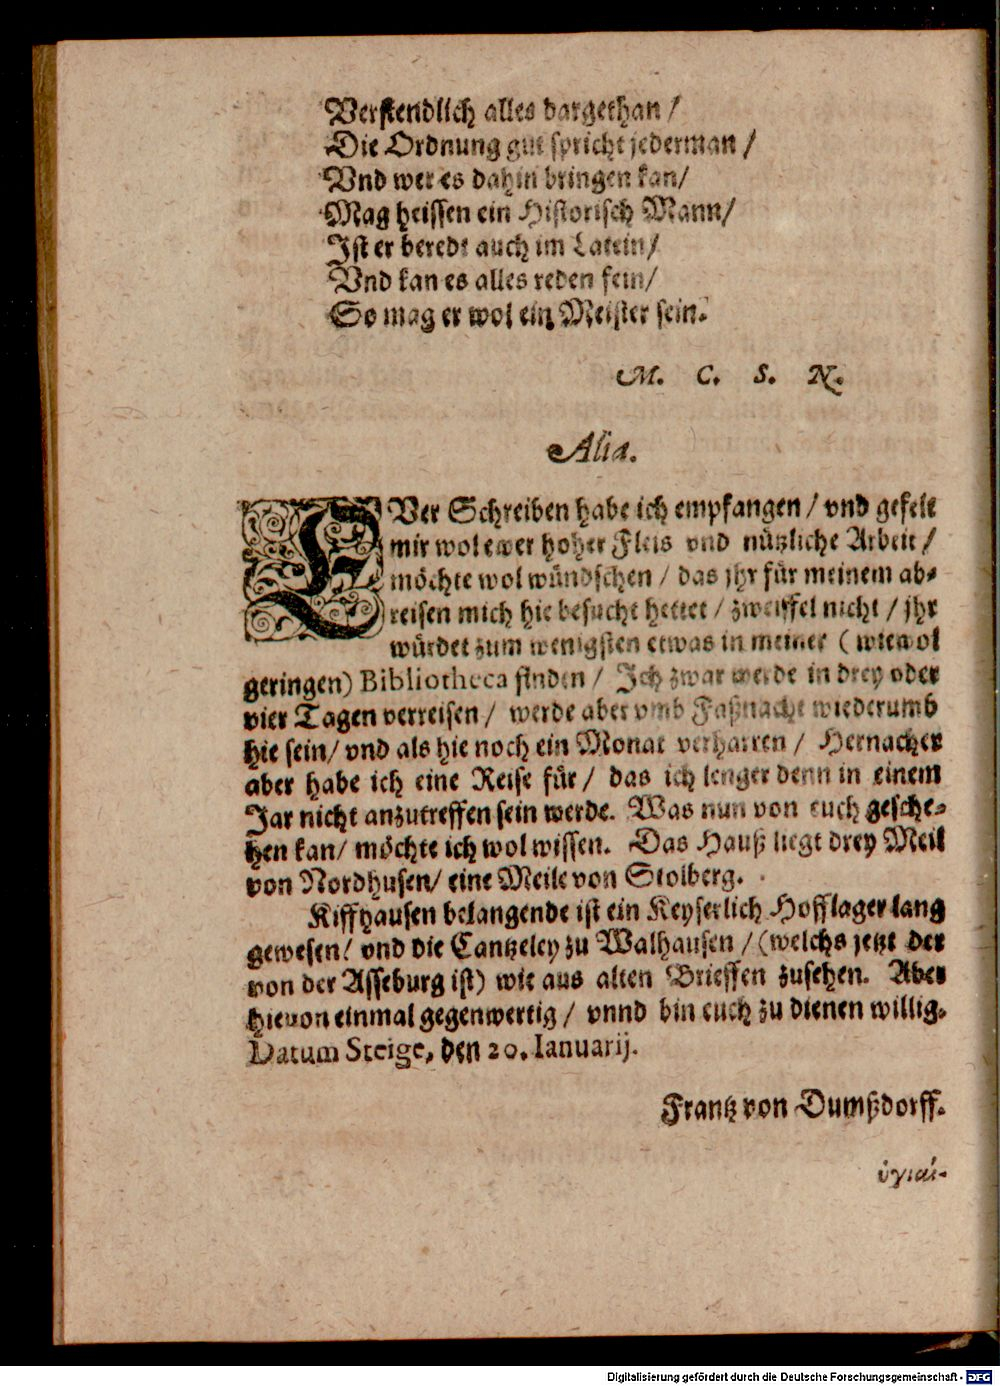 Verstendlich alles dargethan /
Die Ordnung gut spricht jederman /
Vnd wer es dahin bringen kan/
Mag heissen ein Historisch Mann/
Ist er beredt auch im Latein/
Vnd kan es alles reden fein/
So mag er wol ein Meister sein.
M. C. S. N.
Alia.
EVer Schreiben habe ich empfangen / vnd gefelt
mir wol ewer hoher Fleis vnd nützliche Arbeit /
möchte wol wündschen / das jhr für meinem ab-
reisen mich hie besucht hettet / zweiffel nicht / jhr
würdet zum wenigsten etwas in meiner ( wiewol
geringen) Bibliotheca finden / Ich zwar werde in drey oder
vier Tagen verreisen / werde aber vmb Faßnacht wiederumb
hie sein/ vnd als hie noch ein Monat verharren / Hernacher
aber habe ich eine Reise für / das ich lenger denn in einem
Jar nicht anzutreffen sein werde. Was nun von euch gesche-
hen kan/ möchte ich wol wissen. Das Hauß liegt drey Meil
von Nordhusen/ eine Meile von Stolberg.
Kiffhausen belangende ist ein Keyserlich Hofflager lang
gewesen/ vnd die Cantzeley zu Walhausen / (welchs jetzt der
von der Asseburg ist) wie aus alten Brieffen zusehen. Aber
hieuon einmal gegenwertig / vnnd bin euch zu dienen willig.
Datum Steige, den 20. Ianuarij.
Frantz von Dumßdorff.
ὑγιαί-
Digitalisierung gefördert durch die Deutsche Forschungsgemeinschaft - DFG